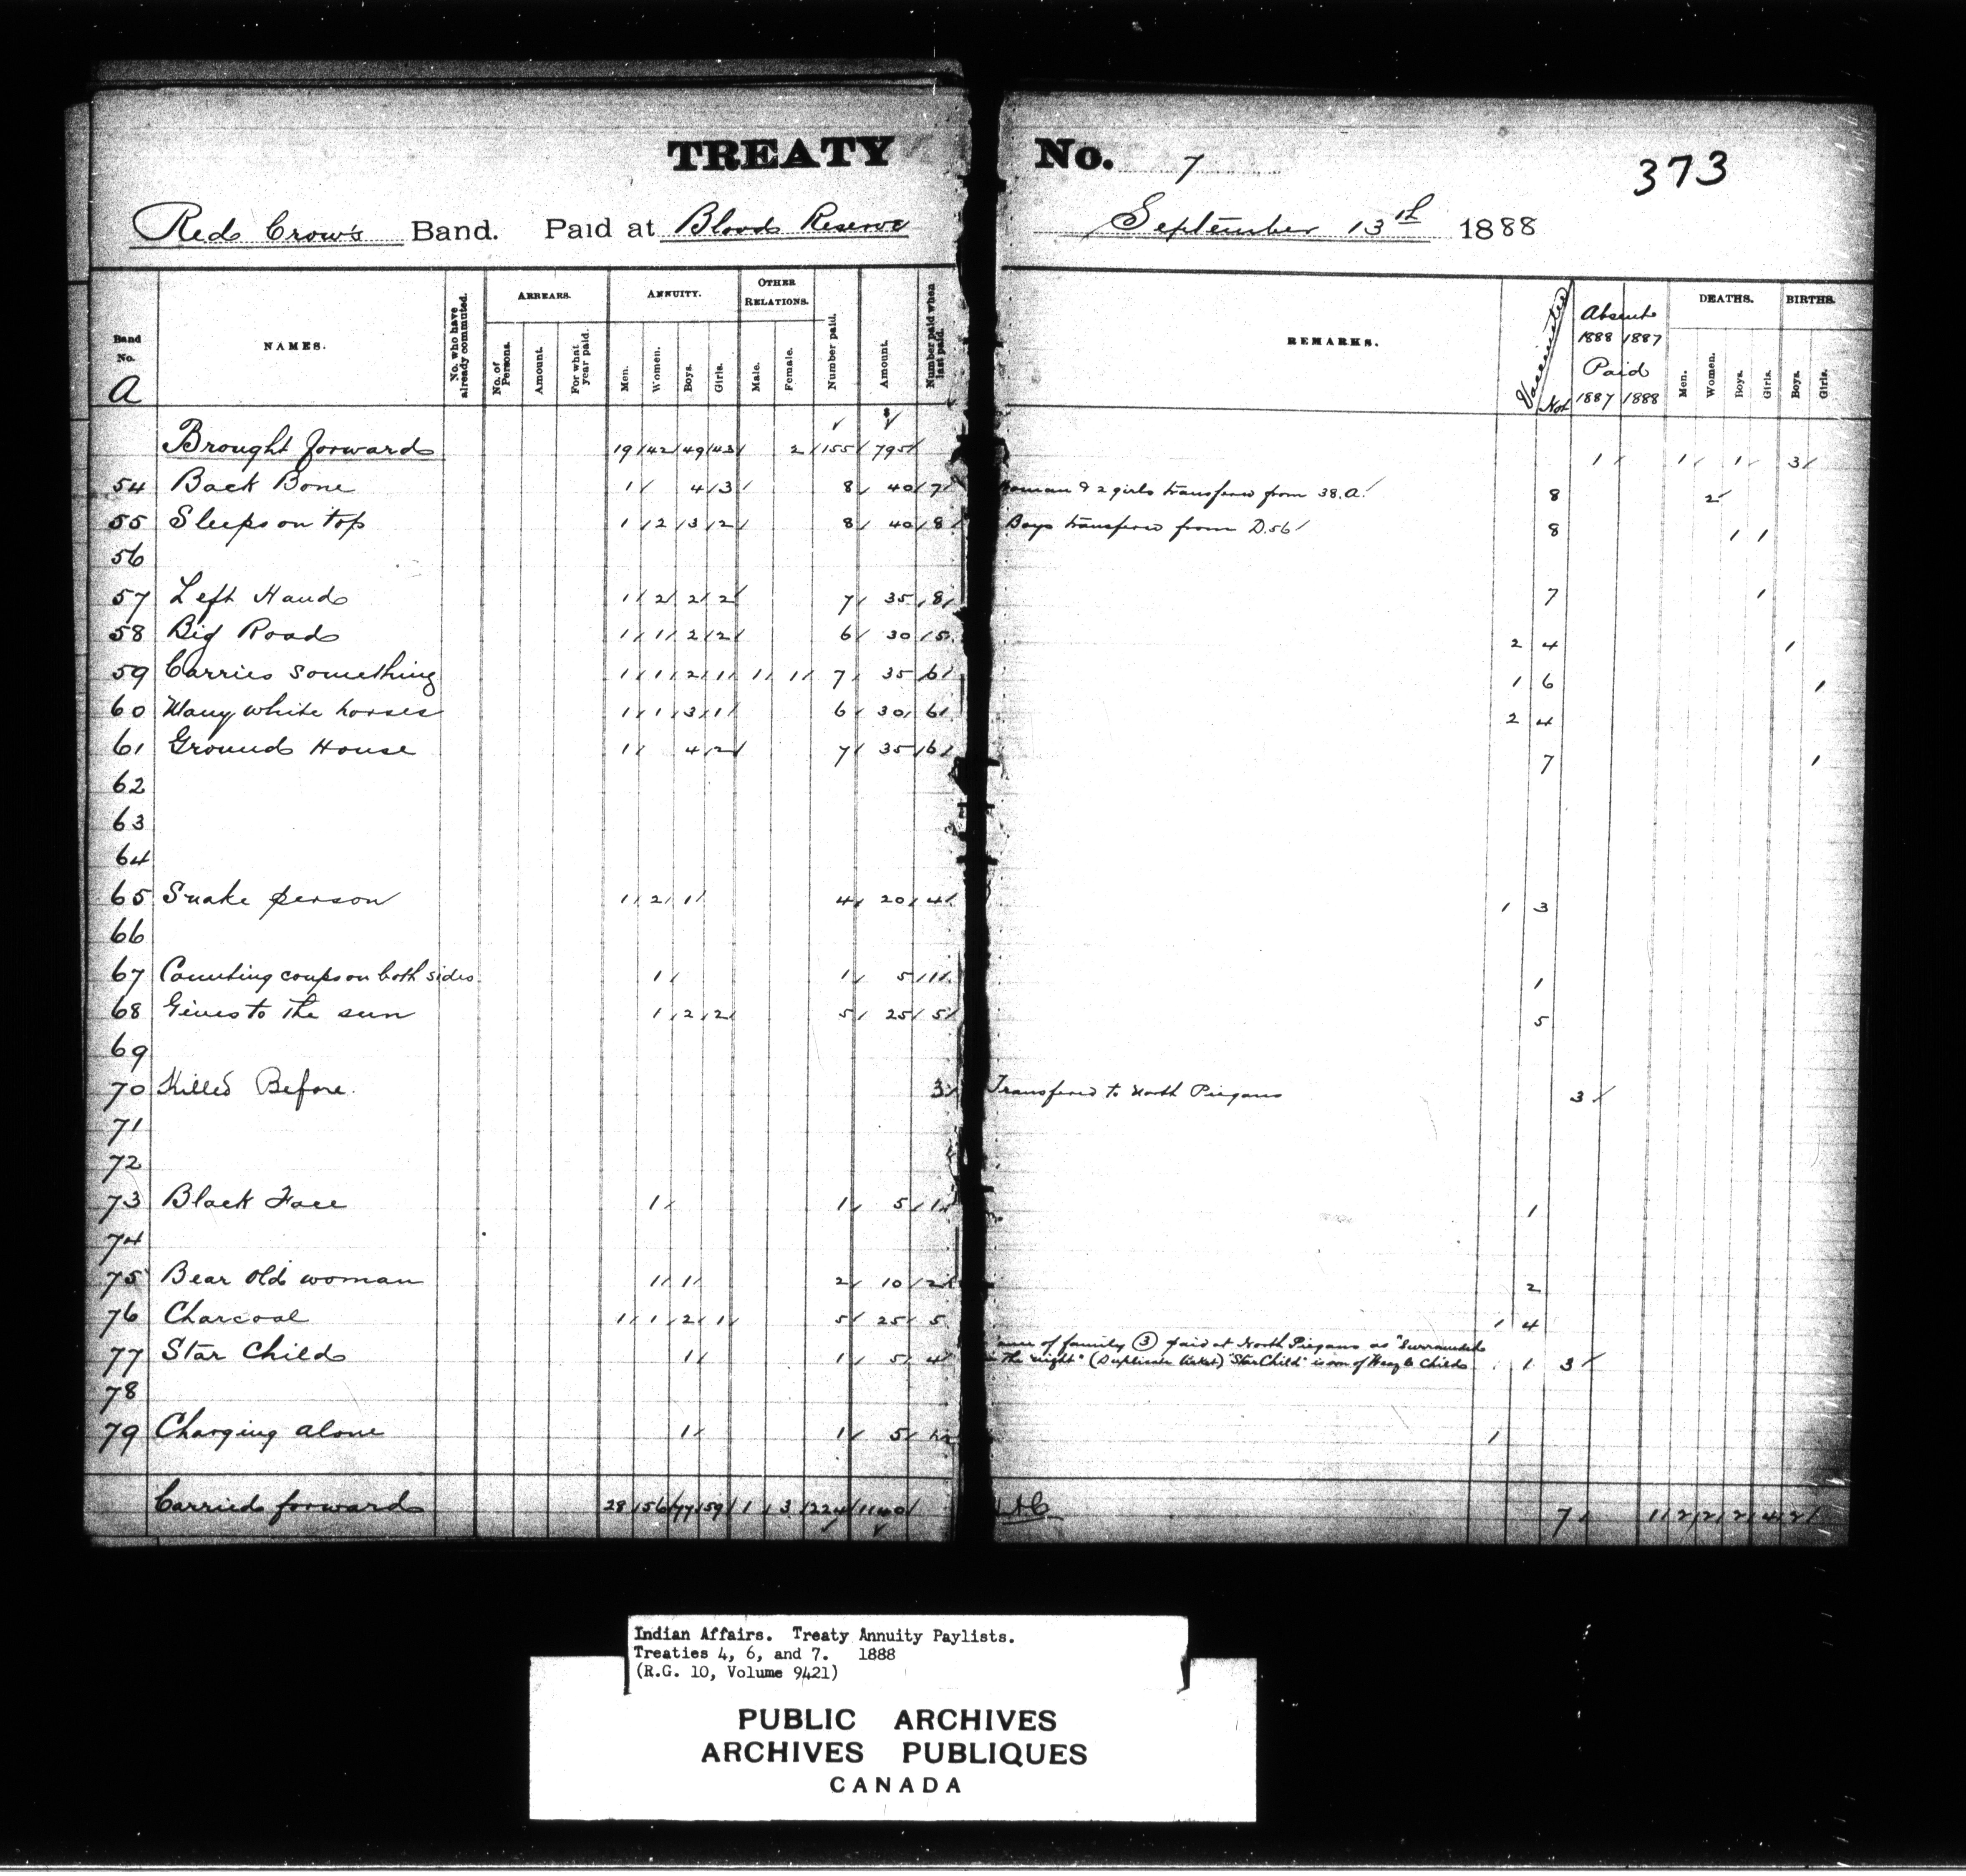 TREATY No. 7
373
Red Crow's Band. Paid at Blood Reserve September 13th 1888
Band No. A
NAMES.
No. who have already commuted.
ARREARS.
No. of Persons.
Amount.
For what year paid.
ANNUITY.
Men.
Women.
Boys.
Girls.
OTHER RELATIONS.
Male.
Female.
Number paid.
Amount.
Number paid when last paid.
REMARKS.
Vaccinated
Not
Absent 1888 1887
Paid 1887 1888
DEATHS.
Men.
Women.
Boys.
Girls.
BIRTHS.
Boys.
Girls.
$
Brought forward 19 42 49 43 2 155 795 1 1 1 3
54 Back Bone 1 4 3 8 40 7 & 2 girls transfered from 38.A. 8 2
55 Sleeps on top 1 2 3 2 8 40 8 Boys transfered from D.56 8 1 1
56
57 Left Hand 1 2 2 2 7 35 8 7 1
58 Big Road 1 1 2 2 6 30 5 2 4 1
59 Carries something 1 1 2 1 1 1 7 35 6 1 6 1
60 Many white horses 1 1 3 1 6 30 6 2 4
61 Ground House 1 4 2 7 35 6 7 1
62
63
64
65 Snake person 1 2 1 4 20 4 1 3
66
67 Counting coups on both sides 1 1 5 1 1
68 Gives to the sun 1 2 2 5 25 5 5
69
70 Killed Before. 3 Transfered to North Piegans 3
71
72
73 Black Face 1 1 5 1 1
74
75 Bear old woman 1 1 2 10 2 2
76 Charcoal 1 1 2 1 5 25 5 1 4
77 Star Child 1 1 5 4 of family (3) paid at North Piegans as "Surrounded
the night" (Duplicate ticket) "Star Child" is son of Child 1 3
78
79 Charging alone 1 1 5 1
Carried forward 28 56 77 59 1 3 224 1140 7 1 2 2 2 4 2
Indian Affairs. Treaty Annuity Paylists.
Treaties 4, 6, and 7. 1888
(R.G. 10, Volume 9421)
PUBLIC ARCHIVES
ARCHIVES PUBLIQUES
CANADA